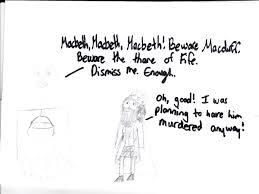 Macbeth, Macbeth, Macbeth! Beware Macduff.
Beware the thane of Fife.
Dismiss me. Enough.
Oh, good! I was
planning to have him
murdered anyway!